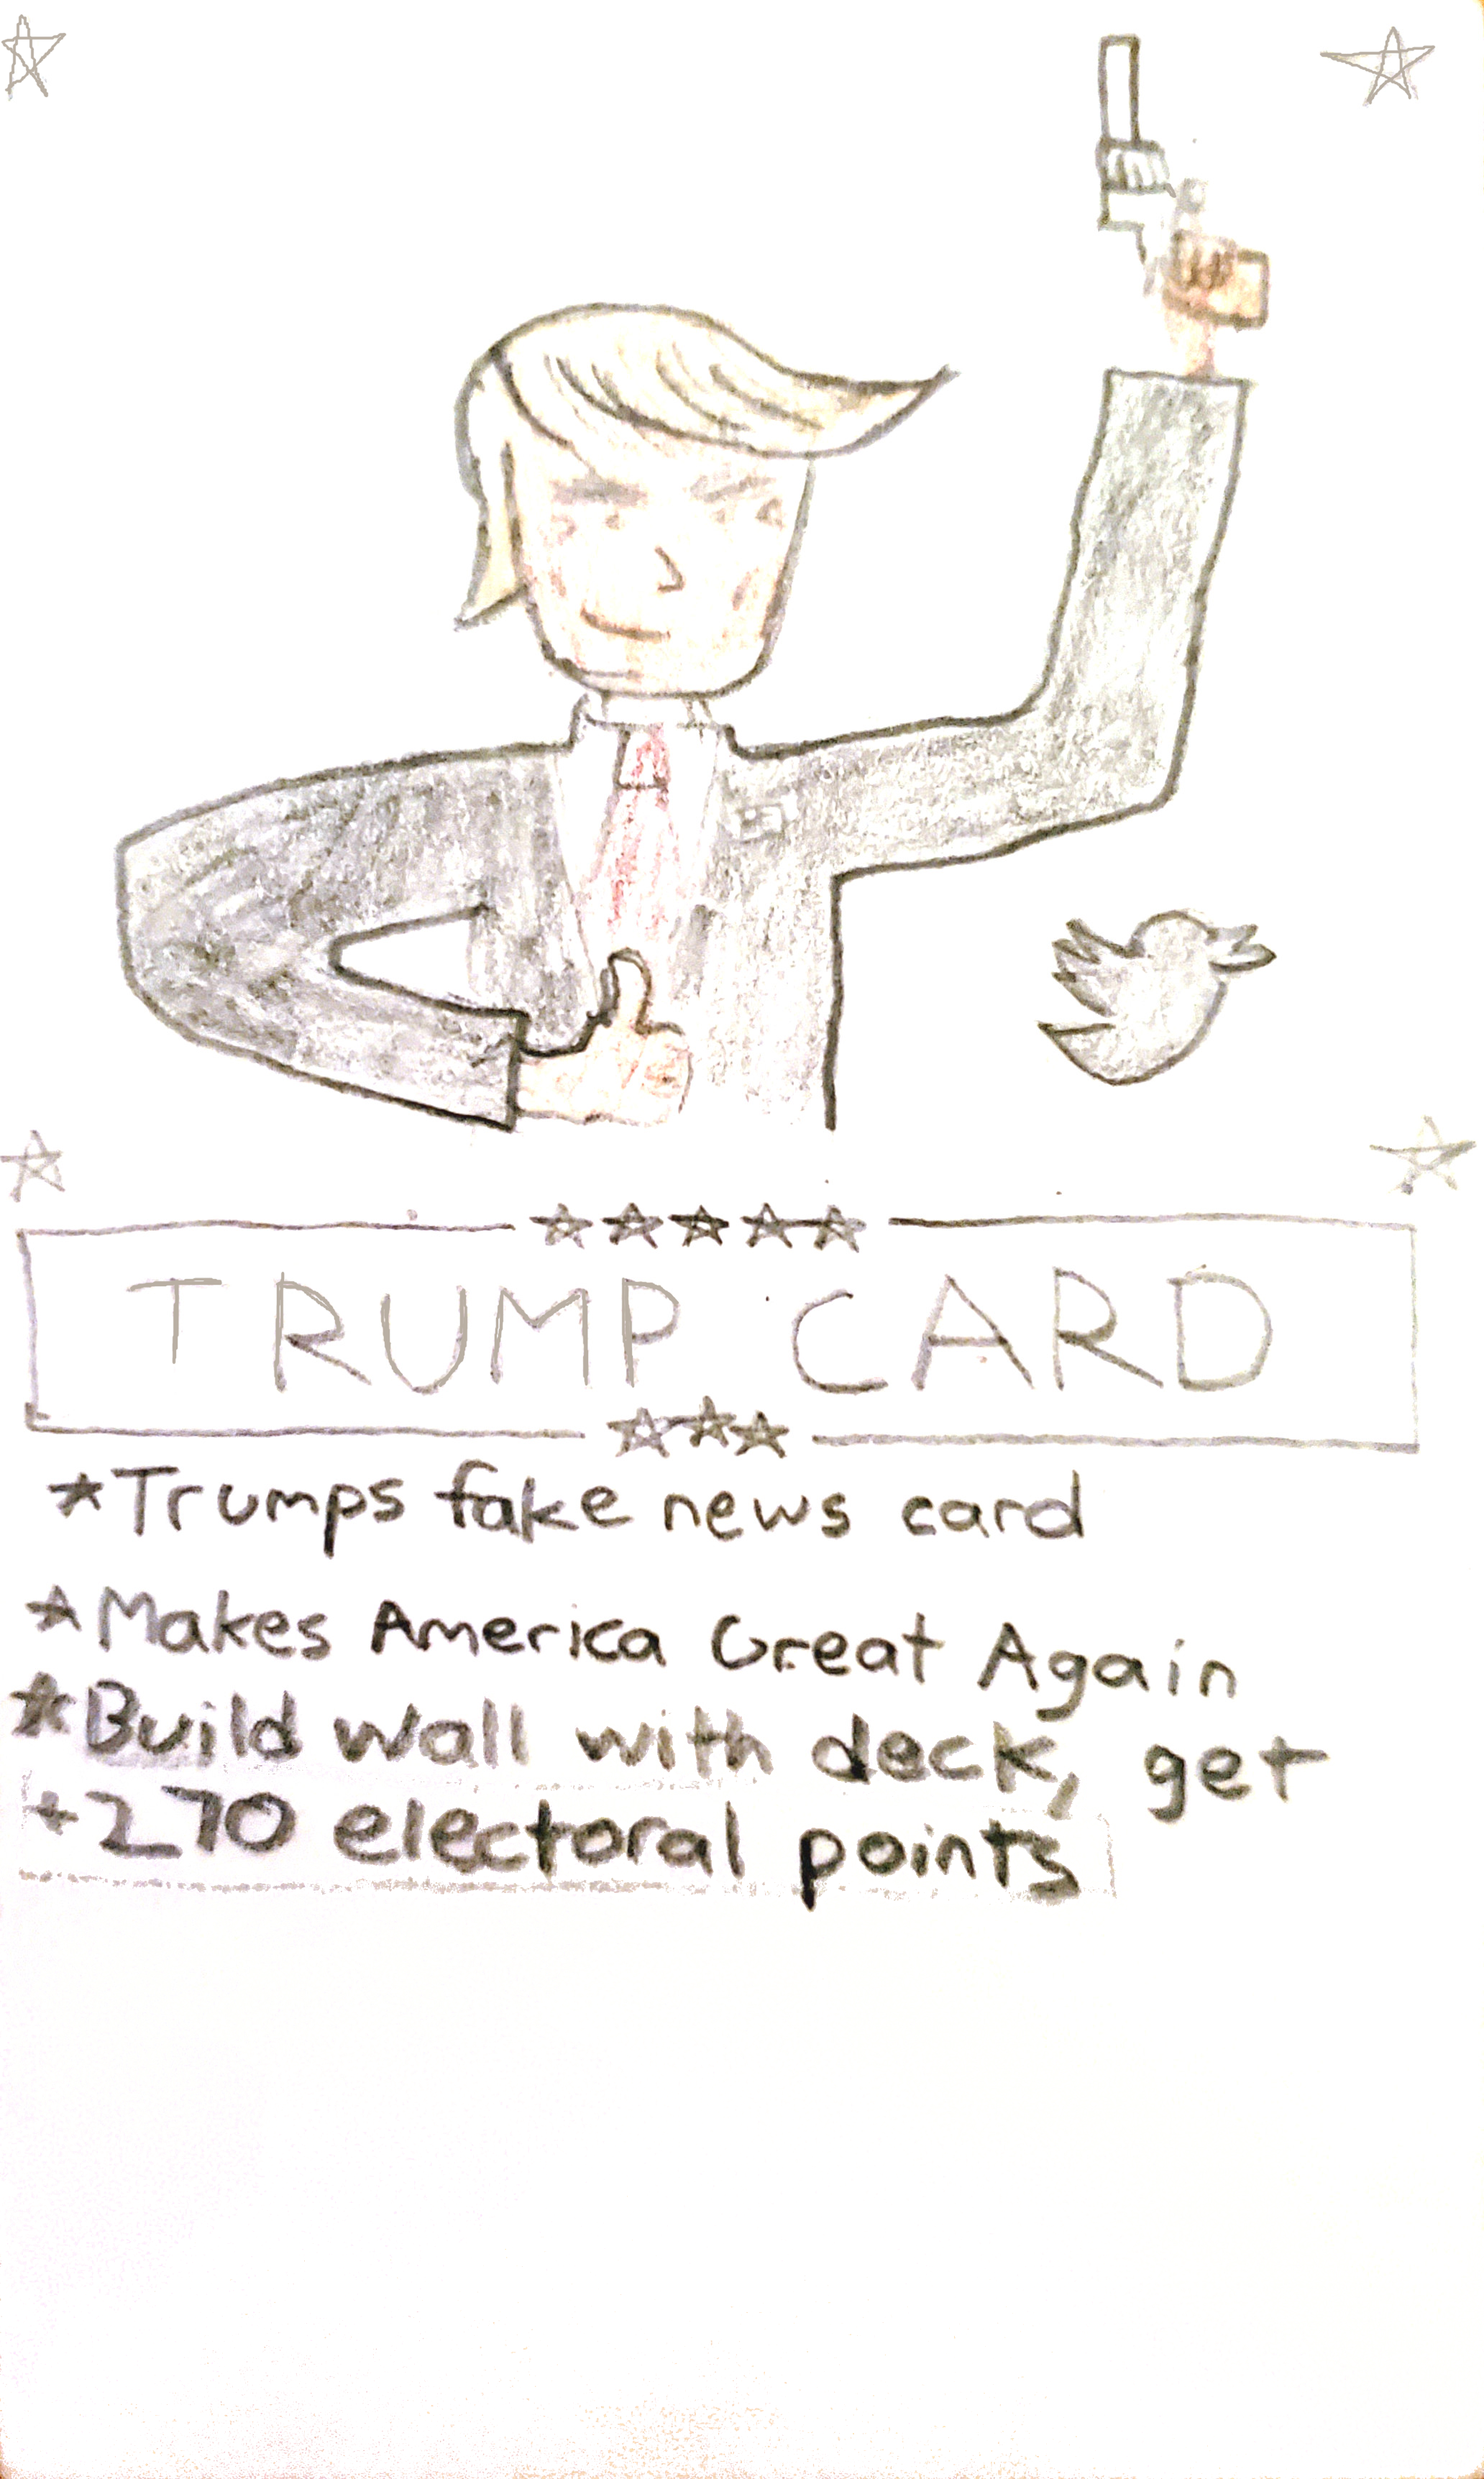 TRUMP CARD
*Trumps fake news card
*Makes America Great Again
*Build wall with deck, get
+270 electoral points